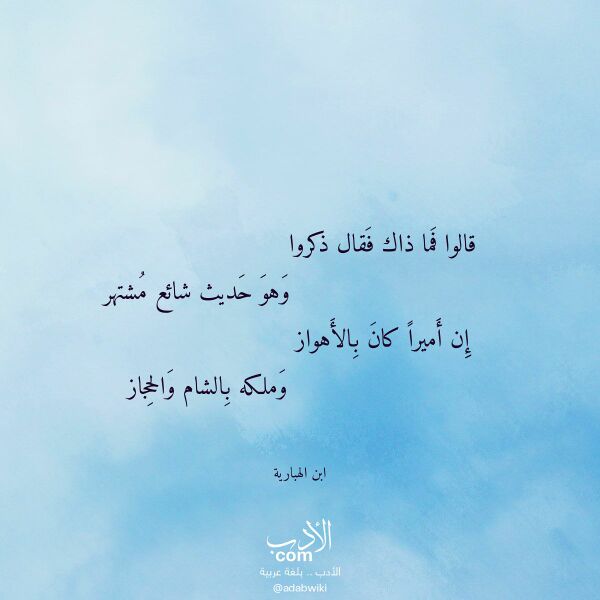 قالوا فَما ذاك فَقال ذكروا
وَهوَ حَديث شائع مُشتهر
إِن أَميراً كانَ بِالأَهواز
وَملكه بِالشام وَالحِجاز
ابن الهبارية
الأدب
com
الأدب .. بلغة عربية
@adabwiki